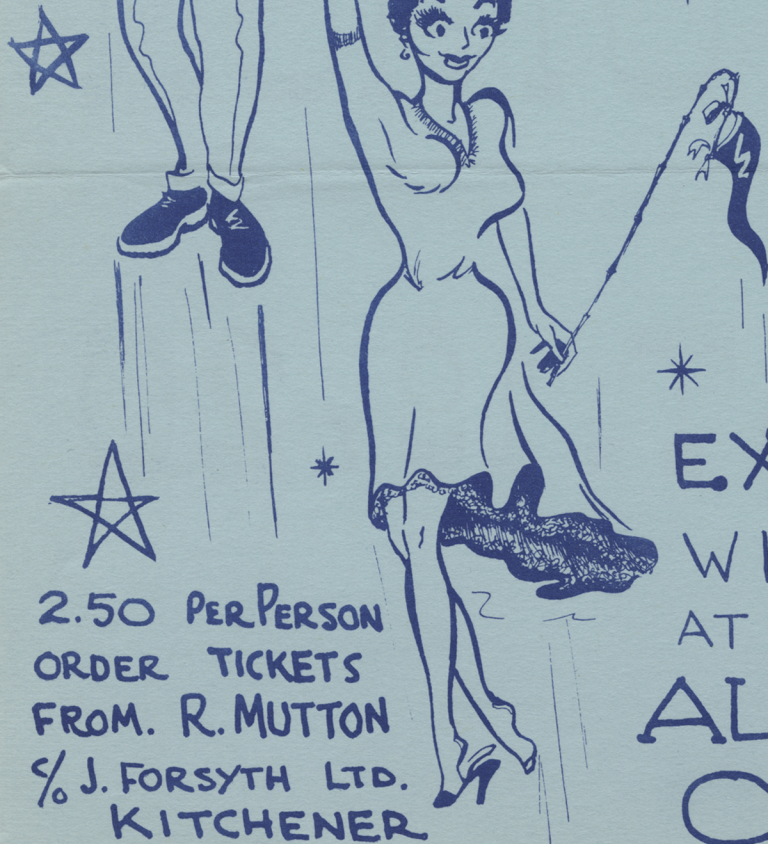 2.50 PER PERSON
ORDER TICKETS
FROM. R. MUTTON
c/o J. FORSYTH LTD.
KITCHENER
EX
W
AT
AL
O